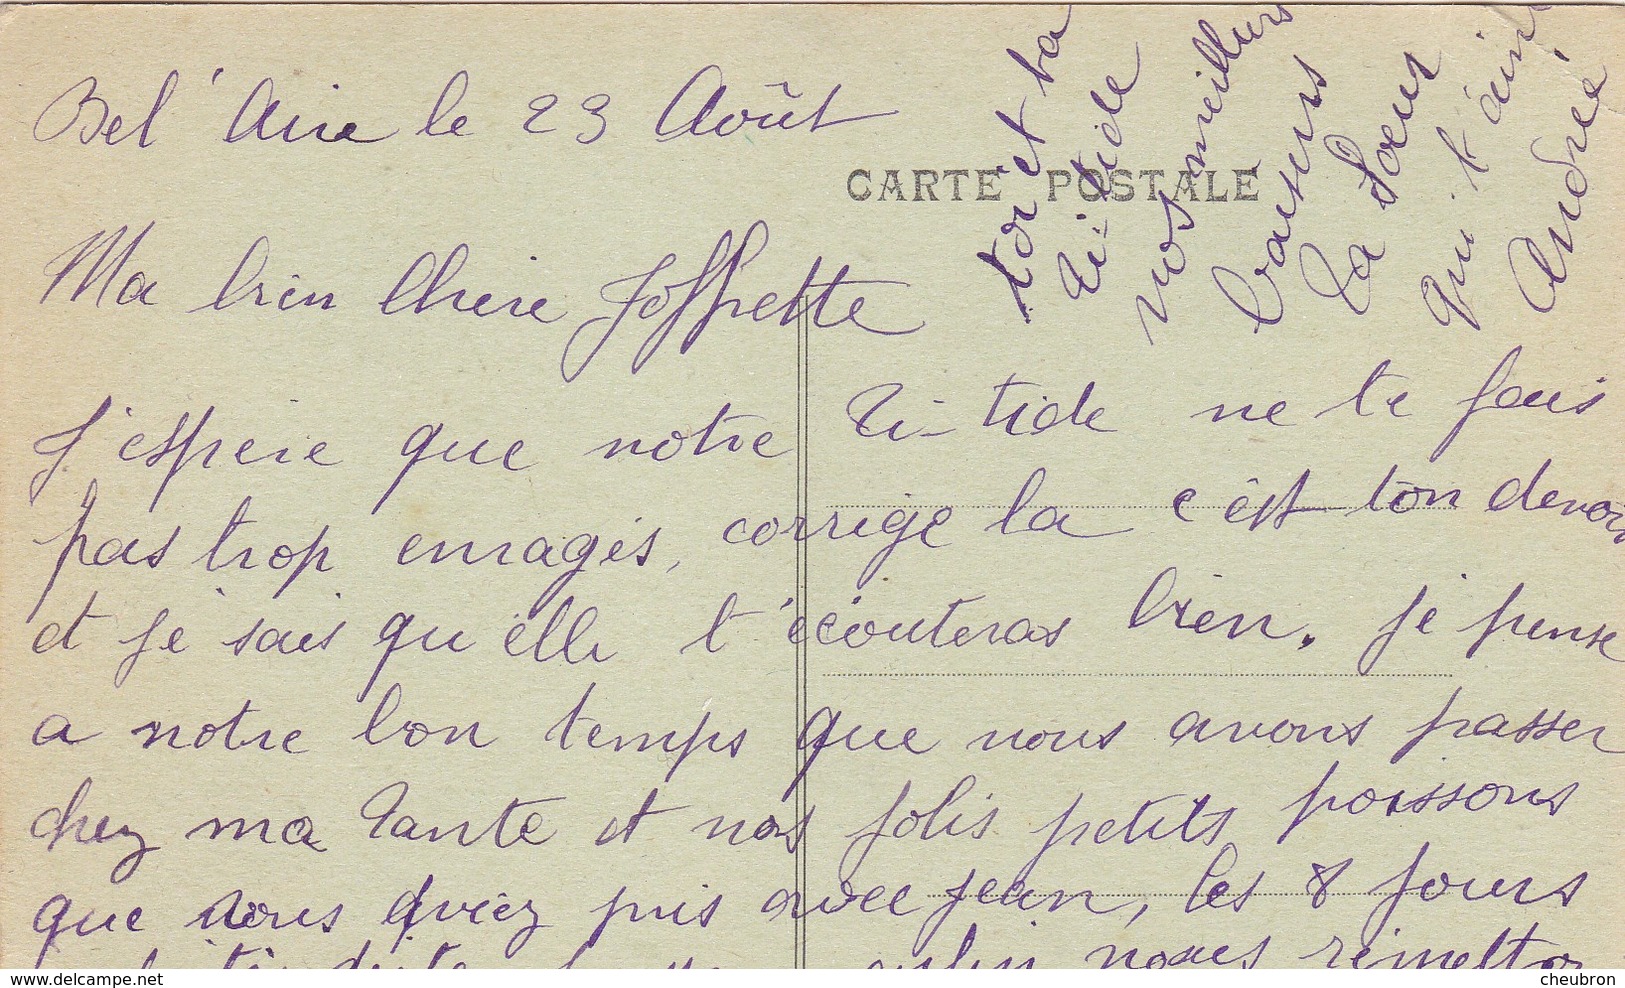 Bel' Aire le 23 Août
CARTE POSTALE
Ma bien Chère Joffrette
J'espère que notre Ti-tide ne te fais
pas trop enragés, corrige la c'est ton devoir
et je sais qu'elle t'écouteras bien. je pense
a notre bon temps que nous avons passer
chez ma Tante et nos jolis petits poissons
que vous aviez pris avec jean, les 8 jours
enfin nous
toi et ta
Ti-tide
nos meilleurs
baisers
ta Soeur
qui t'aime
André
delcampe.net
cheubron